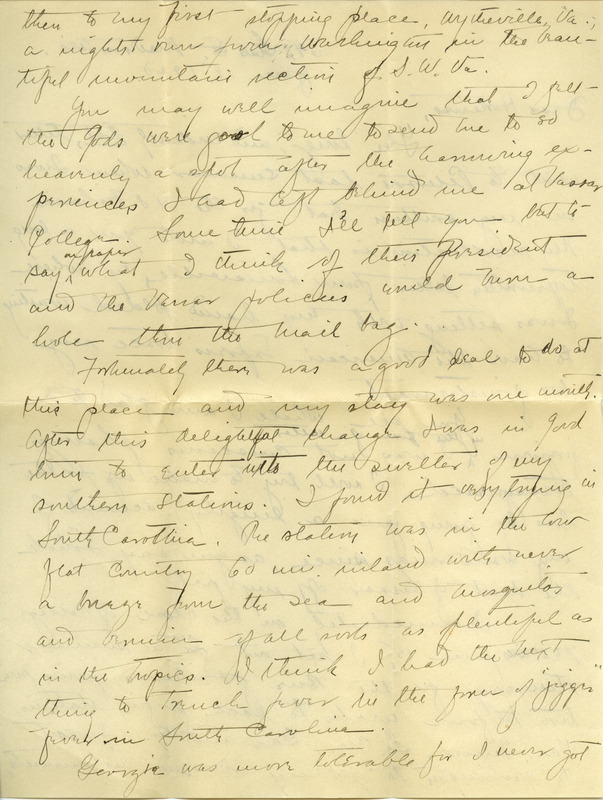 then to my first stopping place, Wytheville, Va.,
a nights run from Washington in the beau-
tiful mountain section of S. W. Va.
You may well imagine that I felt
the Gods were good to me to send me to so
heavenly a spot after the harrowing ex-
periences I had left behind me at Vassar
College. Some time I'll tell you but to
say on paper what I think of their President
and the Vassar policies would burn a
hole thru the mail bag.
Fortunately there was a good deal to do at
this place and my stay was one month.
After this delightful change I was in good
trim to enter into the swelter of my
southern stations. I found it very trying in
South Carolina. The station was in the low
flat country 60 mi. inland with never
a breeze from the sea and mosquitos
and vermin of all sorts as plentiful as
in the tropics. I think I had the next
thing to trench fever in the form of "jigger"
fever in South Carolina.
Georgia was more tolerable for I never got